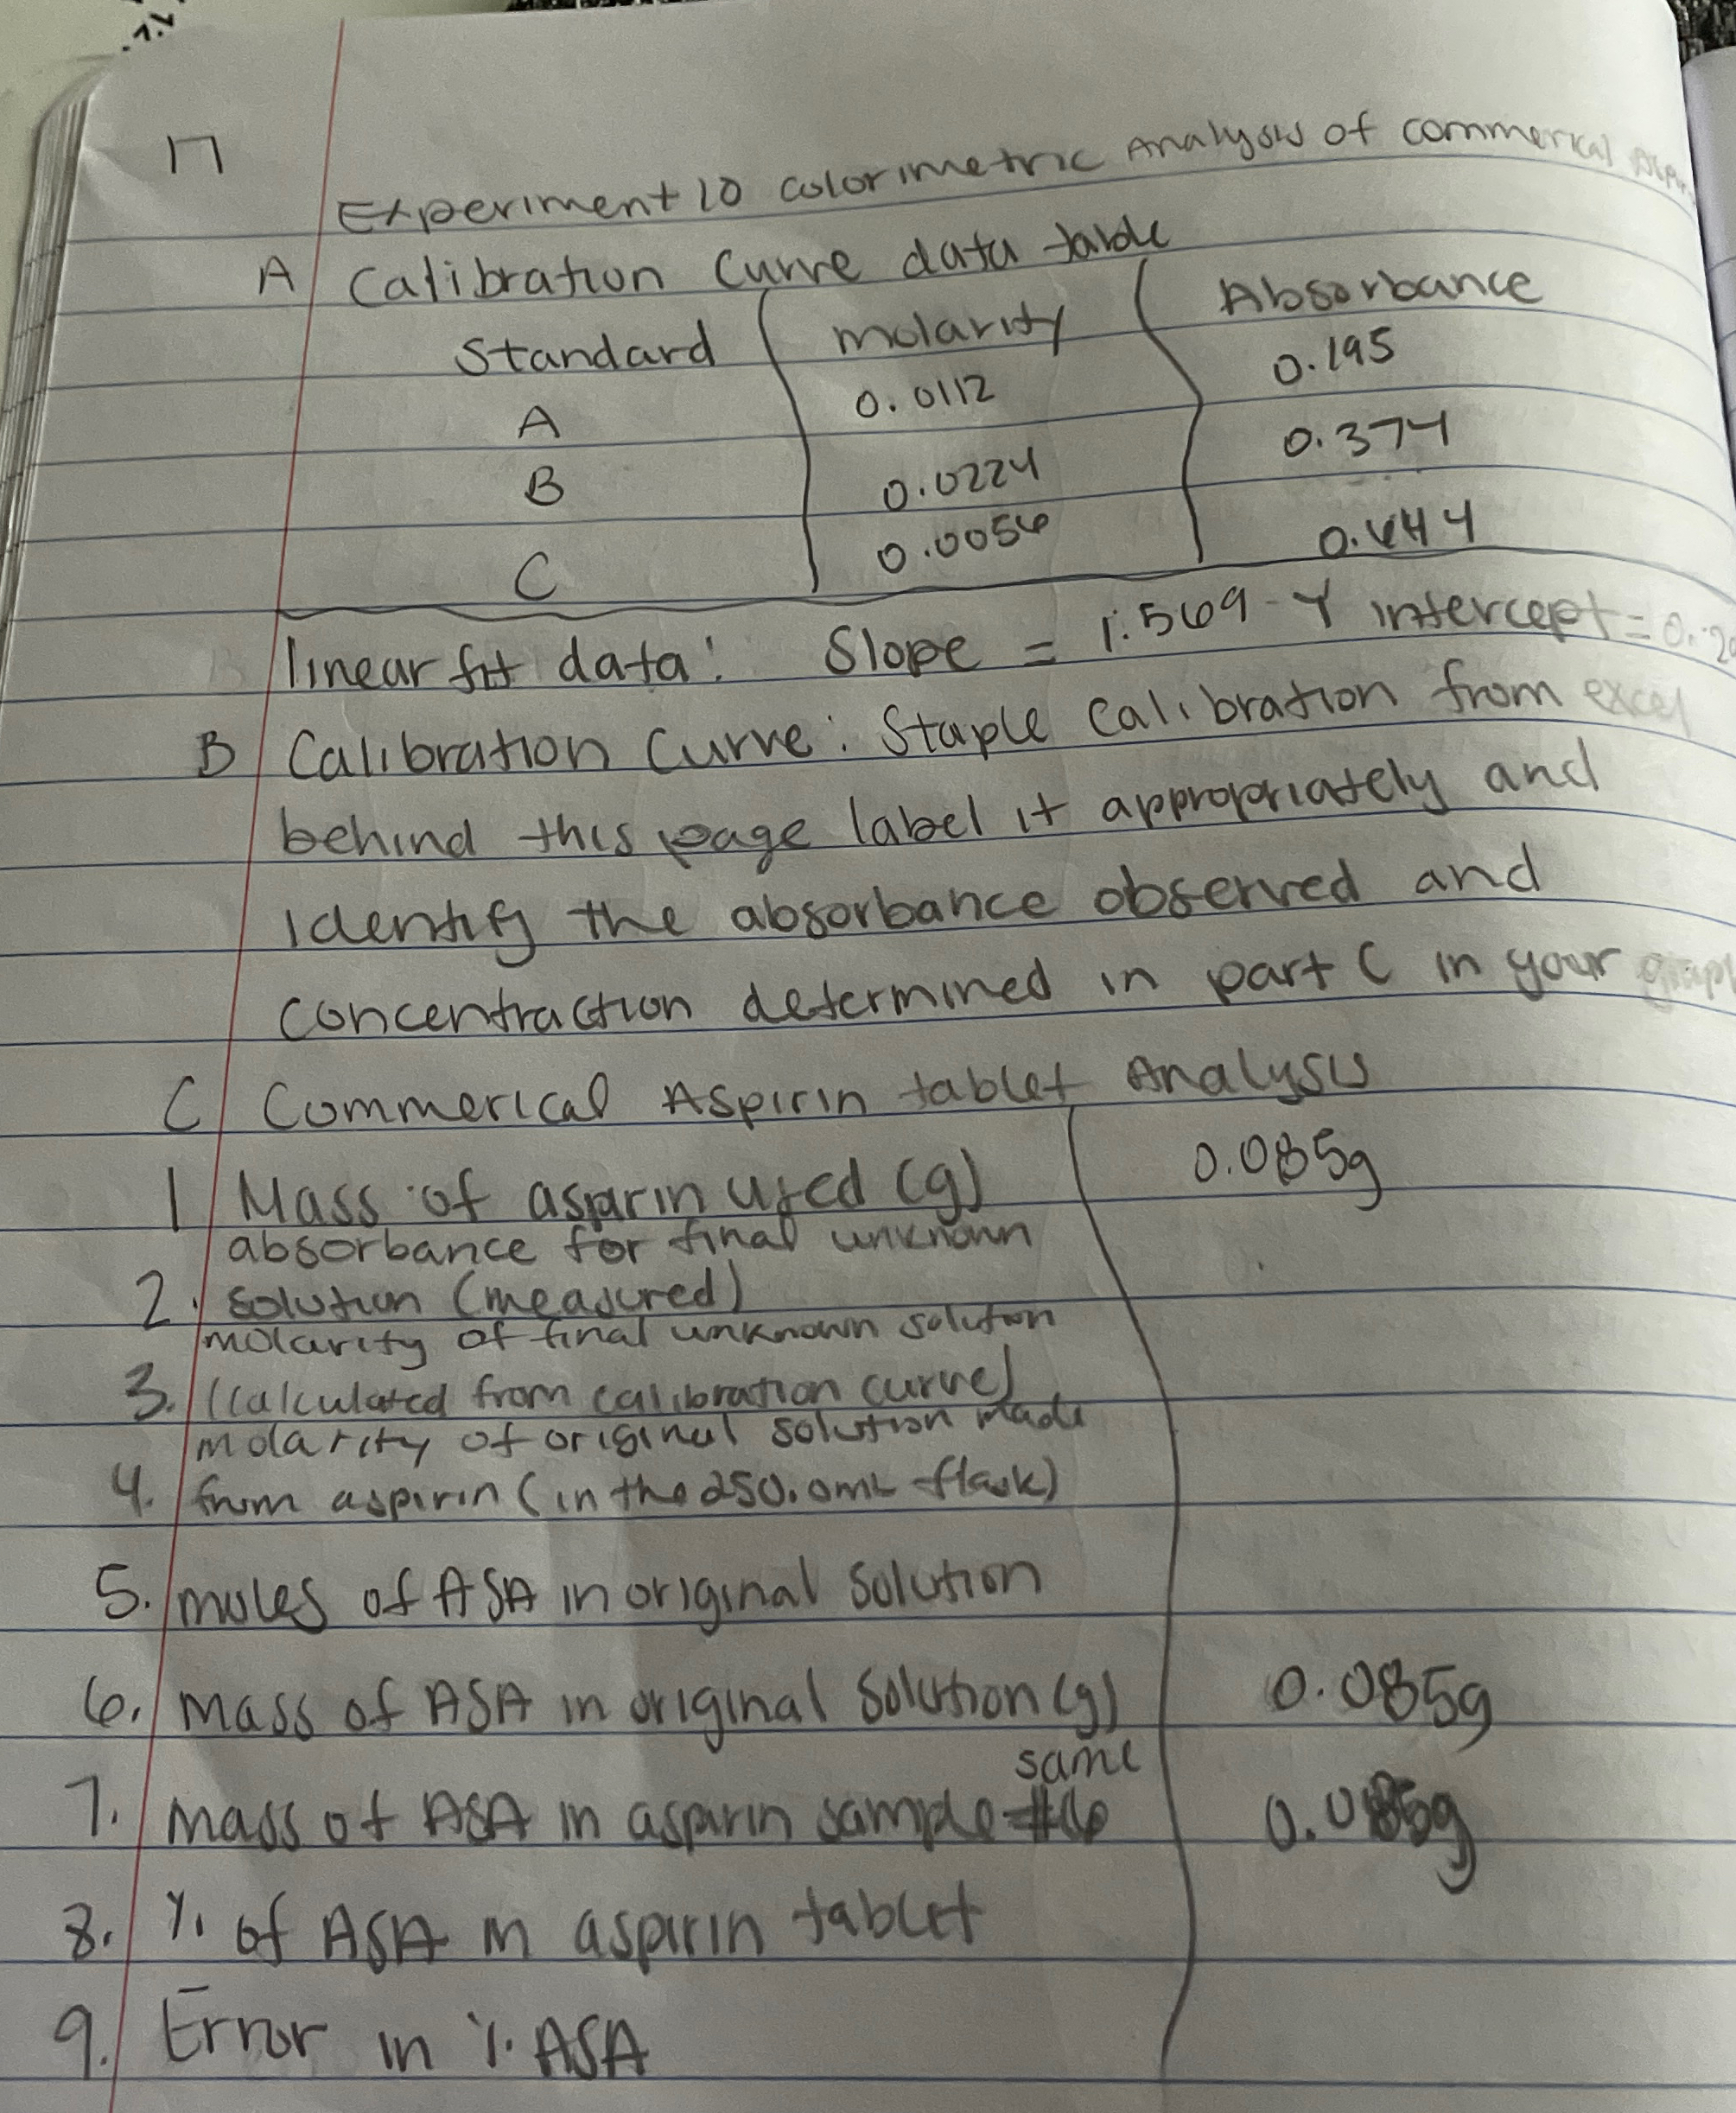 17
Experiment 10 colorimetric Analysis of commerical
A Calibration Curve data table
Standard molarity Absorbance
A 0.0112 0.195
B 0.0224 0.374
C 0.0056
linear fit data: Slope = 1.569 Y intercept =
B Calibration Curve: Staple Calibration from excel
behind this page label it appropriately and
Identify the absorbance observed and
concentraction determined in part C in your
C Commerical Aspirin tablet Analysis
1 Mass of asparin used (g) 0.085g
absorbance for final unknown
2. solution (measured)
molarity of final unknown solution
3. (calculated from calibration curve)
molarity of original solution made
4. from aspirin (in the 250.0mL flask)
5. moles of ASA in original solution
6. Mass of ASA in original Solution (g) 0.085g
same
7. Mass of ASA in asparin sample #6 0.085g
8. % of ASA in aspirin tablet
9. Error in % ASA